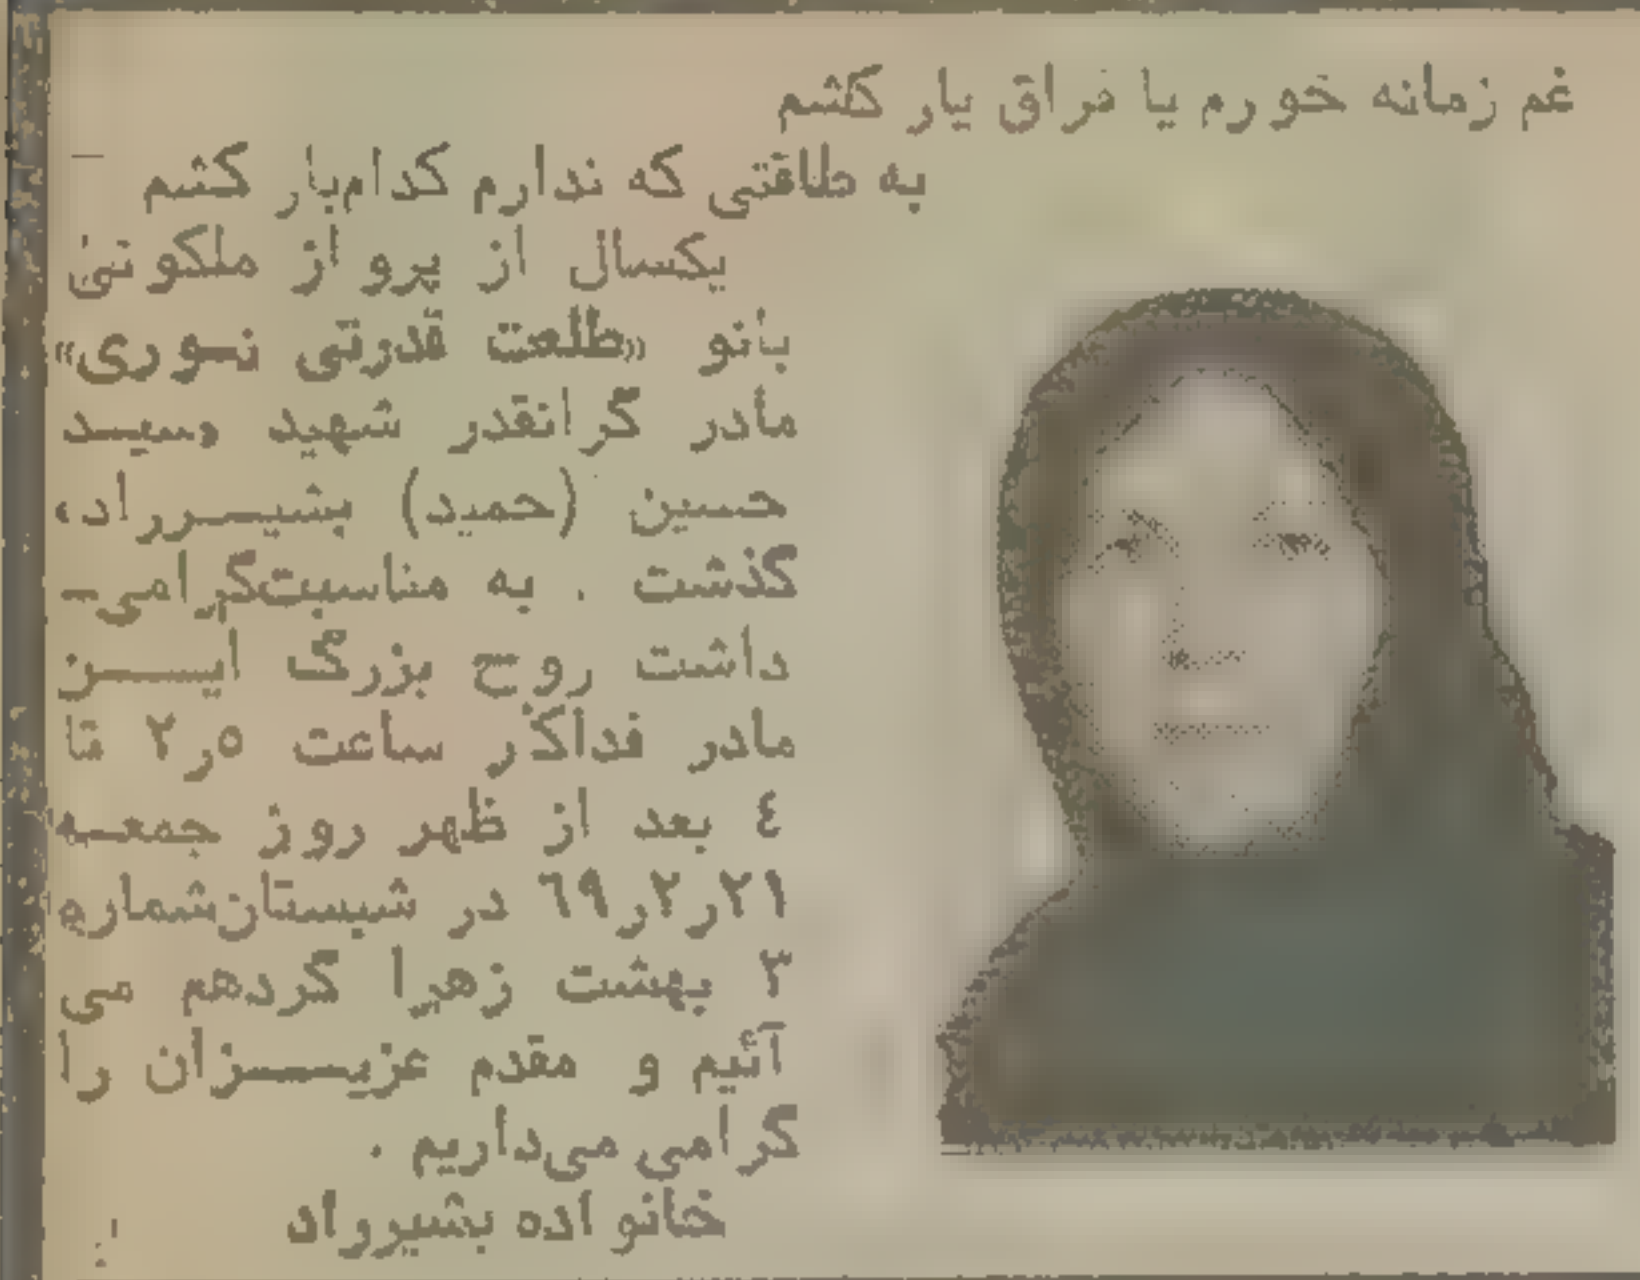 غم زمانه خورم یا فراق یار کشم
به طاقتی که ندارم کدام‌بار کشم
یکسال از پرواز ملکوتی
بانو «طلعت قدرتی نـوری»
مادر گرانقدر شهید وسیـد
حسین (حمید) بشیــرراد،
گذشت . به مناسبت‌گرامی‌ـ
داشت روح بزرگ ایـــن
مادر فداکار ساعت ۲ر۵ تا
٤ بعد از ظهر روز جمعـه
۲۱ر۲ر۶۹ در شبستان‌شماره
۳ بهشت زهرا گردهم می
آئیم و مقدم عزیـــزان را
گرامی می‌داریم .
خانواده بشیرراد